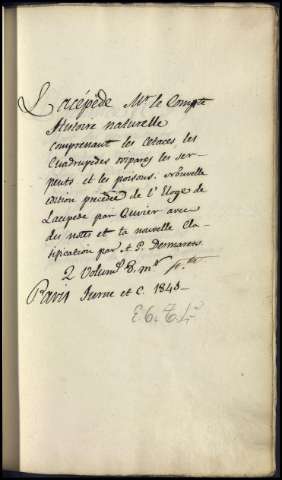 Lacépède Mr. le Compte
Histoire naturelle
comprenant les cétacés, les
Quadrupèdes ovipares les ser-
pents et les poissons. Nouvelle
édition précédée de l'Eloge de
Lacépède par Cuvier avec
des notes et la nouvelle Clas-
sification par A. G. Desmarets
2 Volumes 8,
Paris Furne et C. 1845